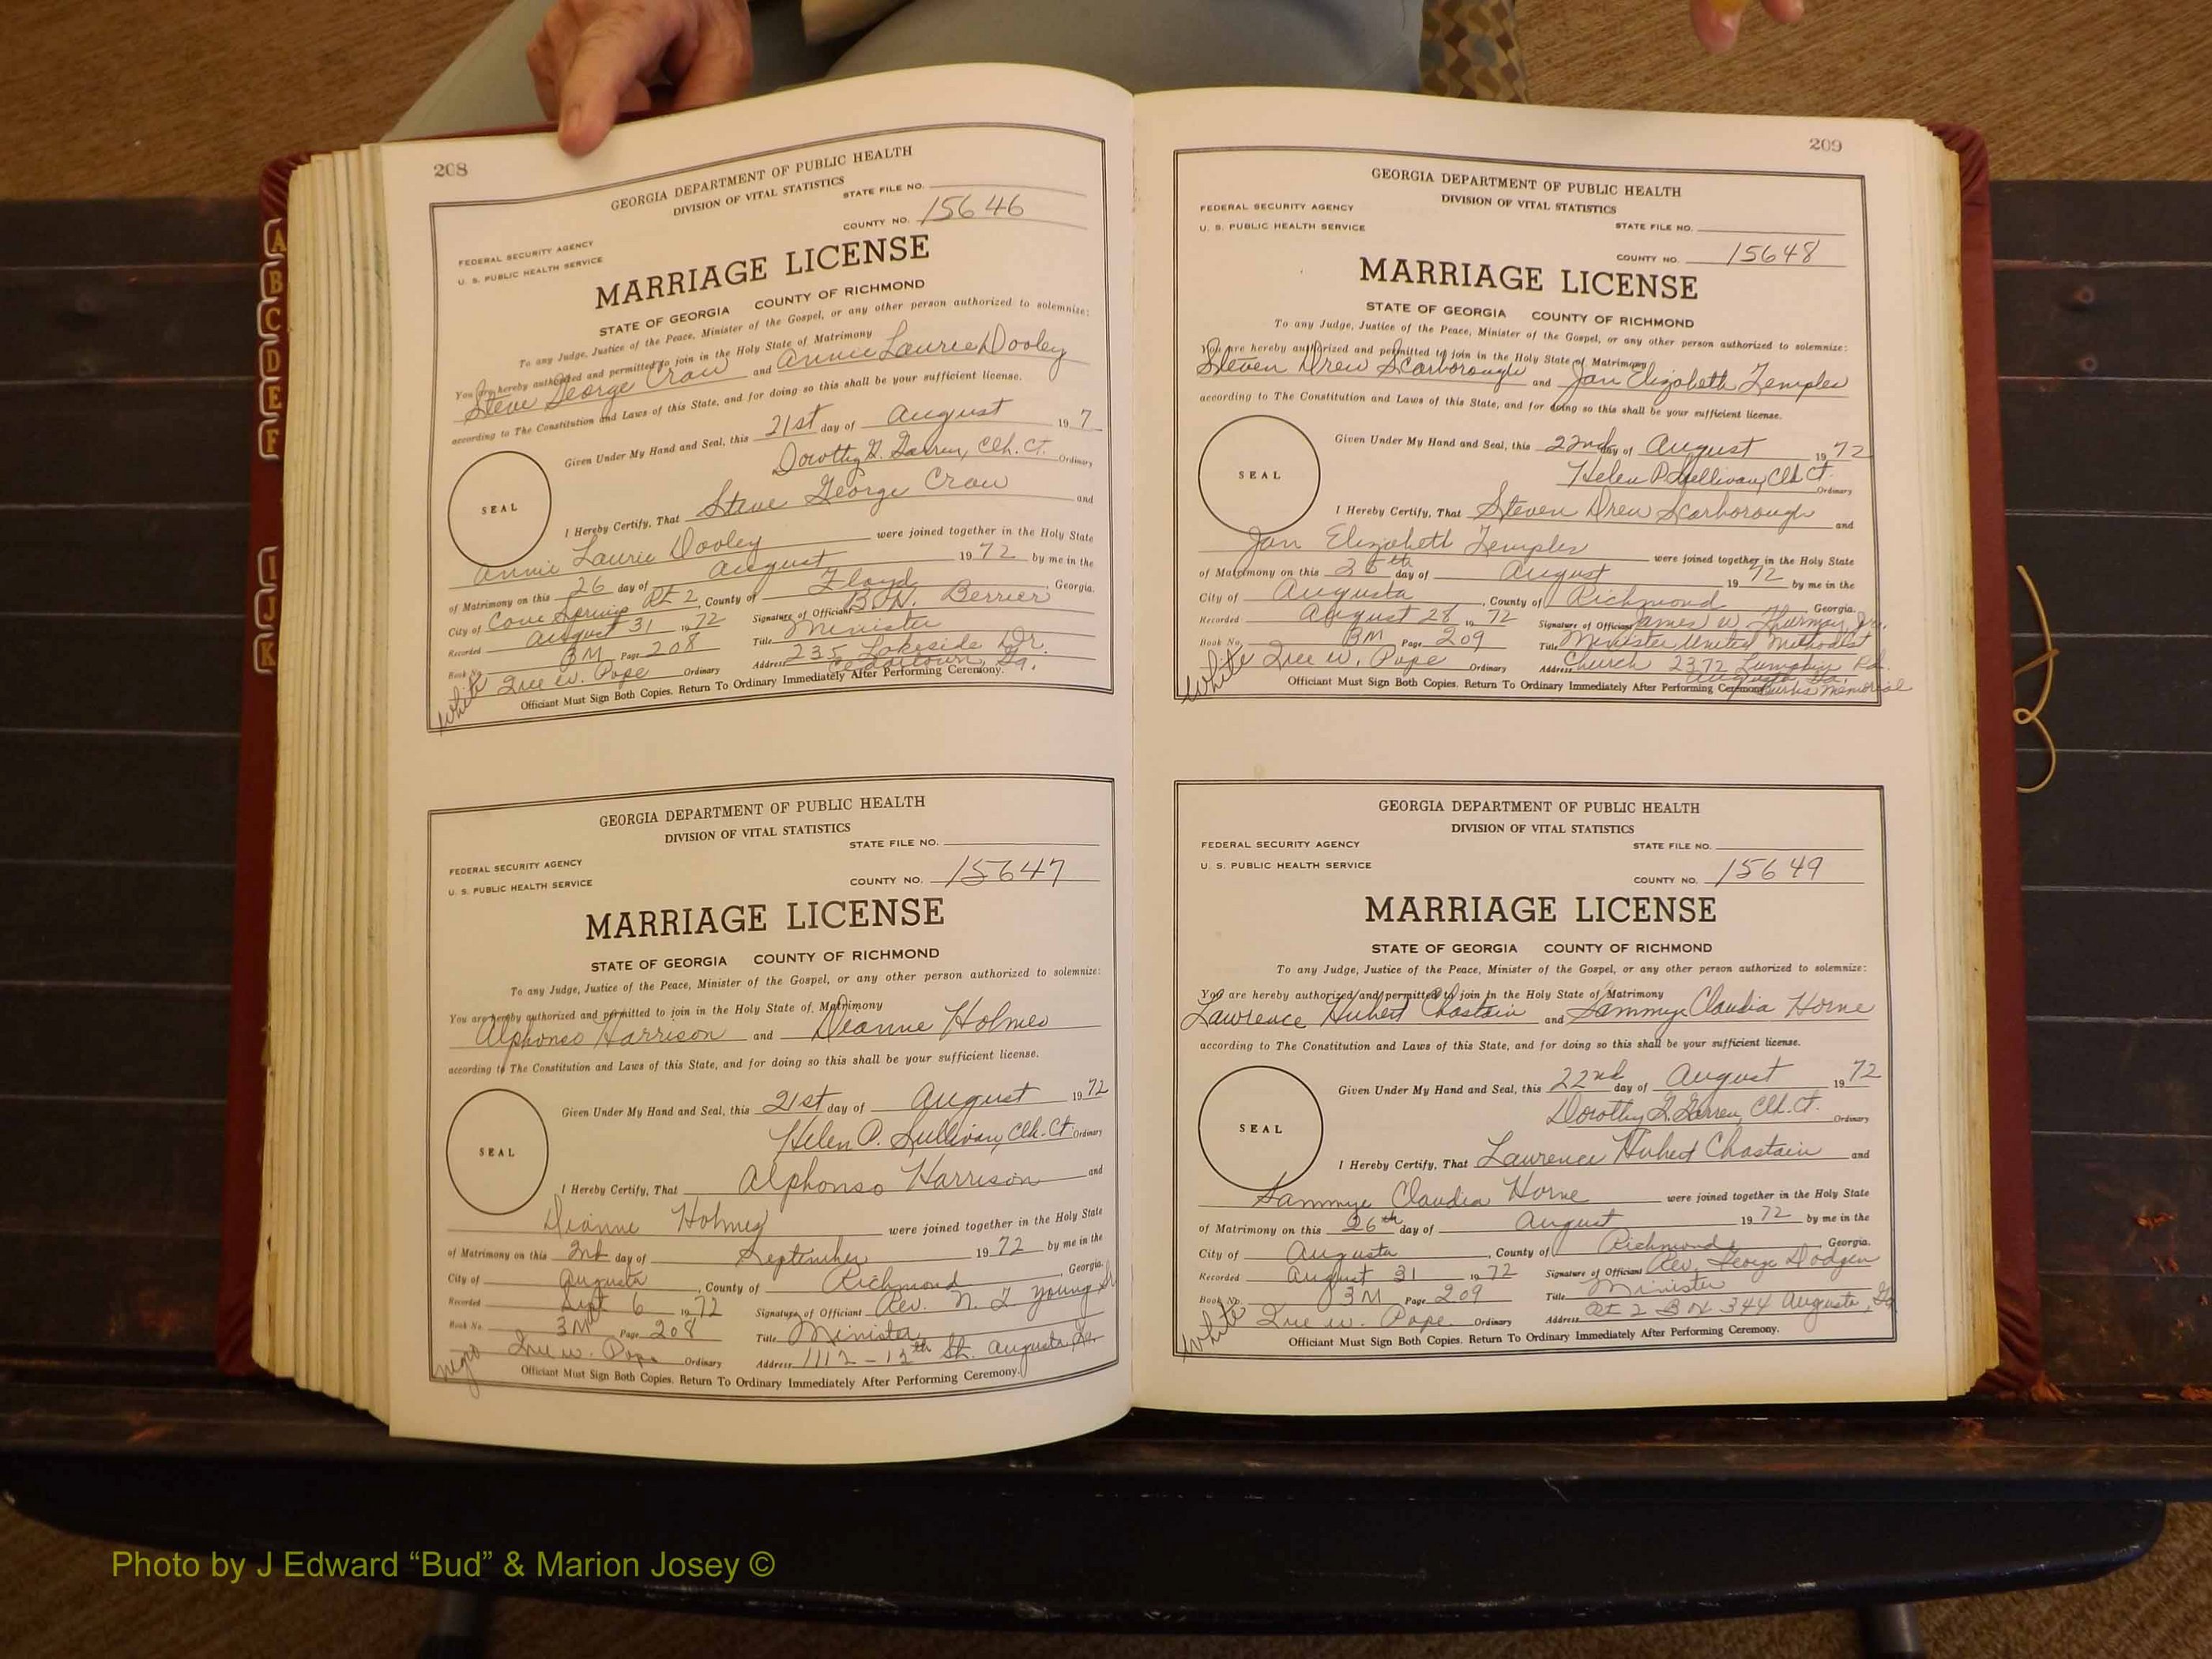 208
GEORGIA DEPARTMENT OF PUBLIC HEALTH
DIVISION OF VITAL STATISTICS
STATE FILE NO.
COUNTY NO. 15646
FEDERAL SECURITY AGENCY
U. S. PUBLIC HEALTH SERVICE
MARRIAGE LICENSE
STATE OF GEORGIA COUNTY OF RICHMOND
To any Judge, Justice of the Peace, Minister of the Gospel, or any other person authorized to solemnize:
You are hereby authorized and permitted to join in the Holy State of Matrimony
Steve George Crow and Annie Laurie Dooley
according to The Constitution and Laws of this State, and for doing so this shall be your sufficient license.
Given Under My Hand and Seal, this 21st day of August 197
Dorothy Clk. Ct. Ordinary
SEAL
I Hereby Certify, That Steve George Crow and
Annie Laurie Dooley were joined together in the Holy State
of Matrimony on this 26 day of August 1972 by me in the
City of Cave Springs Rt 2, County of Floyd, Georgia.
Recorded August 31 1972 Signature of Officiant B. N. Berrier
Book No. 3M Page 208 Title Minister
Address 235 Lakeside Dr.
Cedartown, Ga.
White W. Pope Ordinary
Officiant Must Sign Both Copies. Return To Ordinary Immediately After Performing Ceremony.
GEORGIA DEPARTMENT OF PUBLIC HEALTH
DIVISION OF VITAL STATISTICS
STATE FILE NO.
FEDERAL SECURITY AGENCY
U. S. PUBLIC HEALTH SERVICE
COUNTY NO. 15647
MARRIAGE LICENSE
STATE OF GEORGIA COUNTY OF RICHMOND
To any Judge, Justice of the Peace, Minister of the Gospel, or any other person authorized to solemnize:
You are hereby authorized and permitted to join in the Holy State of Matrimony
Alphonso Harrison and Dianne Holmes
according to The Constitution and Laws of this State, and for doing so this shall be your sufficient license.
Given Under My Hand and Seal, this 21st day of August 1972
Helen P. Sullivan, Clk. Ct. Ordinary
SEAL
I Hereby Certify, That Alphonso Harrison and
Dianne Holmes were joined together in the Holy State
of Matrimony on this 2nd day of September 1972 by me in the
City of Augusta, County of Richmond, Georgia.
Recorded Sept 6 1972 Signature of Officiant Rev. N. T. Young Sr
Book No. 3M Page 208 Title Minister
negro W. Pope Ordinary Address 1112 - 12th St. Augusta, Ga.
Officiant Must Sign Both Copies. Return To Ordinary Immediately After Performing Ceremony.
209
GEORGIA DEPARTMENT OF PUBLIC HEALTH
DIVISION OF VITAL STATISTICS
FEDERAL SECURITY AGENCY
U. S. PUBLIC HEALTH SERVICE
STATE FILE NO.
COUNTY NO. 15648
MARRIAGE LICENSE
STATE OF GEORGIA COUNTY OF RICHMOND
To any Judge, Justice of the Peace, Minister of the Gospel, or any other person authorized to solemnize:
You are hereby authorized and permitted to join in the Holy State of Matrimony
Steven Drew Scarborough and Jan Elizabeth Temples
according to The Constitution and Laws of this State, and for doing so this shall be your sufficient license.
Given Under My Hand and Seal, this 22nd day of August 1972
Helen P. Sullivan, Clk Ct. Ordinary
SEAL
I Hereby Certify, That Steven Drew Scarborough and
Jan Elizabeth Temples were joined together in the Holy State
of Matrimony on this day of August 1972 by me in the
City of Augusta, County of Richmond, Georgia.
Recorded August 28 1972 Signature of Officiant James W. Thurmon, Jr.
Book No. 3M Page 209 Title Minister United Methodist
White W. Pope Ordinary Address Church 2372 Lumpkin Rd.
Augusta, Ga.
Burns Memorial
Officiant Must Sign Both Copies. Return To Ordinary Immediately After Performing Ceremony.
GEORGIA DEPARTMENT OF PUBLIC HEALTH
DIVISION OF VITAL STATISTICS
FEDERAL SECURITY AGENCY
U. S. PUBLIC HEALTH SERVICE
STATE FILE NO.
COUNTY NO. 15649
MARRIAGE LICENSE
STATE OF GEORGIA COUNTY OF RICHMOND
To any Judge, Justice of the Peace, Minister of the Gospel, or any other person authorized to solemnize:
You are hereby authorized and permitted to join in the Holy State of Matrimony
Lawrence Hubert Chastain and Sammye Claudia Horne
according to The Constitution and Laws of this State, and for doing so this shall be your sufficient license.
Given Under My Hand and Seal, this 22nd day of August 1972
Dorothy Clk. Ct. Ordinary
SEAL
I Hereby Certify, That Lawrence Hubert Chastain and
Sammye Claudia Horne were joined together in the Holy State
of Matrimony on this 26th day of August 1972 by me in the
City of Augusta, County of Richmond, Georgia.
Recorded August 31 1972 Signature of Officiant Rev. George Dodgen
Book No. 3M Page 209 Title Minister
White W. Pope Ordinary Address Rt 2 Box 344 Augusta, Ga
Officiant Must Sign Both Copies. Return To Ordinary Immediately After Performing Ceremony.
A
B
C
D
E
F
I
J
K
Photo by J Edward “Bud” & Marion Josey ©